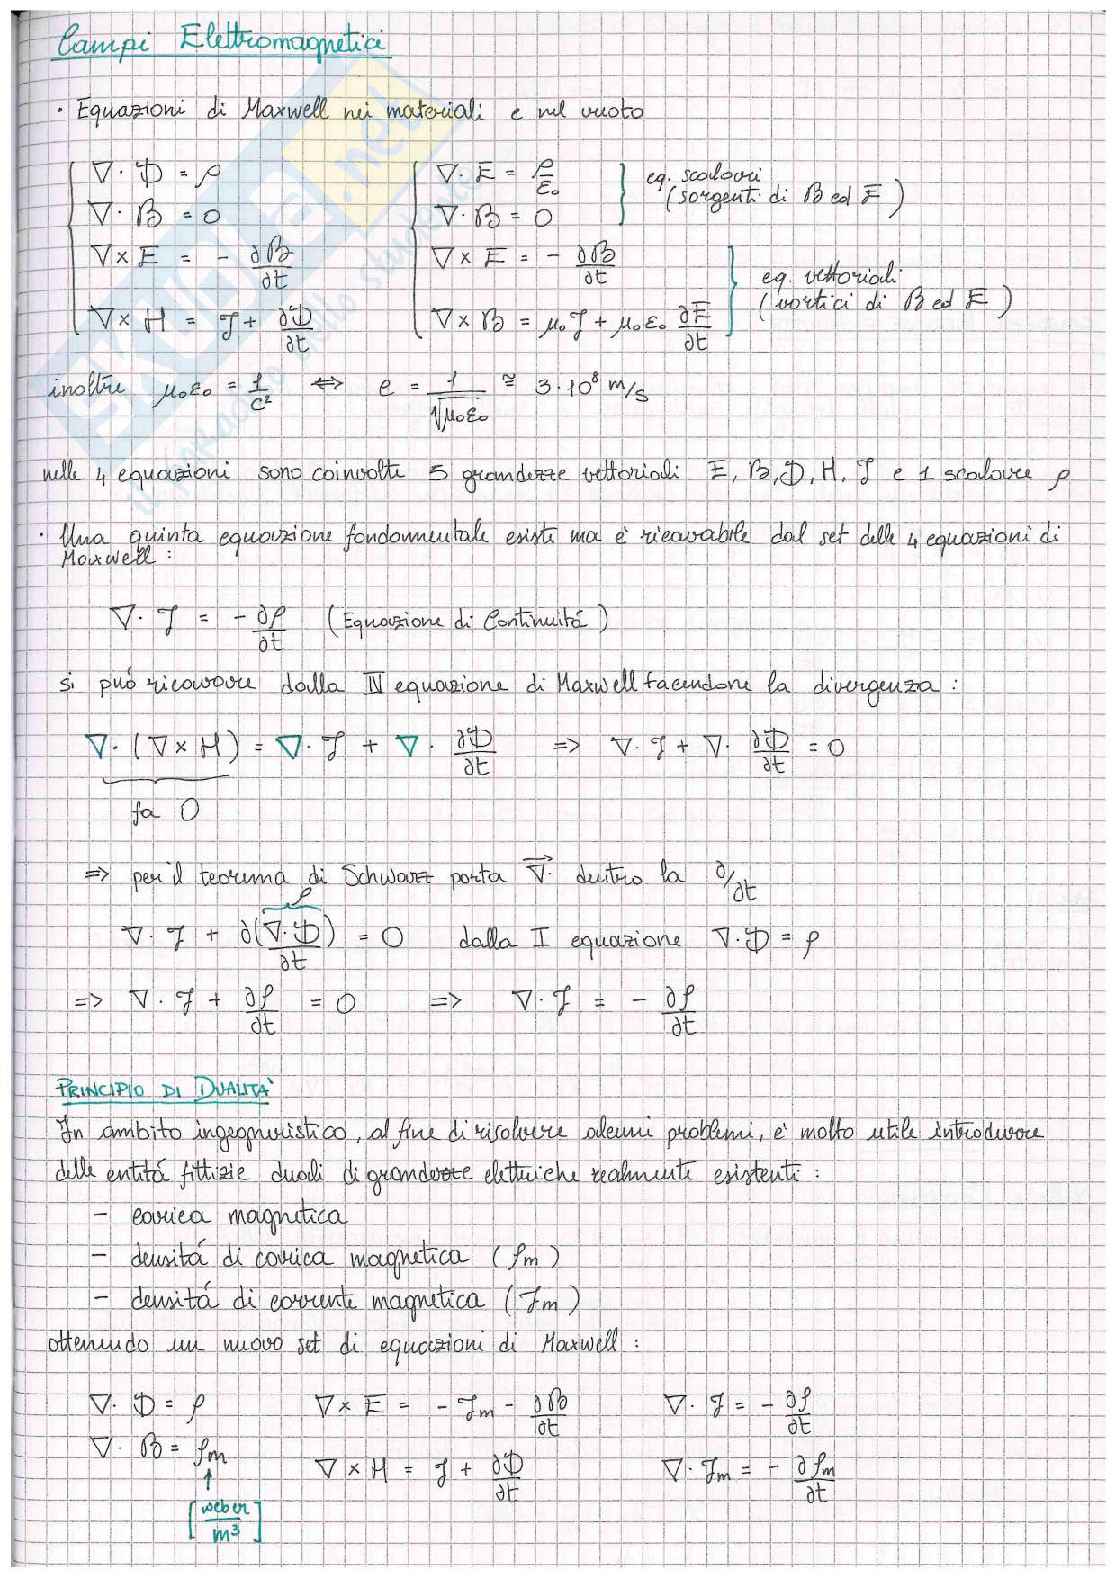 Campi Elettromagnetici
· Equazioni di Maxwell nei materiali e nel vuoto
∇· D = ρ
∇· B = 0
∇× E = - ∂B/∂t
∇× H = J + ∂D/∂t
∇· E = ρ/ε₀
∇· B = 0
∇× E = - ∂B/∂t
∇× B = μ₀ J + μ₀ε₀ ∂E̅/∂t
eq. scalari
(sorgenti di B ed E)
eq. vettoriali
(vortici di B ed E)
inoltre μ₀ε₀ = 1/c² ⇔ c = 1/√μ₀ε₀ ≅ 3·10⁸ m/s
nelle 4 equazioni sono coinvolte 5 grandezze vettoriali E, B, D, H, J e 1 scalare ρ
· Una quinta equazione fondamentale esiste ma è ricavabile dal set delle 4 equazioni di
Maxwell :
∇· J = - ∂ρ/∂t (Equazione di Continuitá)
si puó ricavare dalla IV equazione di Maxwell facendone la divergenza :
∇· (∇× H) = ∇· J + ∇· ∂D/∂t => ∇· J + ∇· ∂D/∂t = 0
fa 0
=> per il teorema di Schwarz porta ∇⃗· dentro la ∂/∂t
ρ
∇· J + ∂(∇·D)/∂t = 0 dalla I equazione ∇·D = ρ
=> ∇· J + ∂ρ/∂t = 0 => ∇· J = - ∂ρ/∂t
PRINCIPIO DI DUALITA'
In ambito ingegneristico, al fine di risolvere alcuni problemi, e' molto utile introdurre
delle entitá fittizie duali di grandezze elettriche realmente esistenti :
- carica magnetica
- densitá di carica magnetica (ρm)
- densitá di corrente magnetica (Jm)
ottenendo un nuovo set di equazioni di Maxwell :
∇· D = ρ ∇× E = - Jm - ∂B/∂t ∇· J = - ∂ρ/∂t
∇· B = ρm ∇× H = J + ∂D/∂t ∇· Jm = - ∂ρm/∂t
↑
[weber/m³]